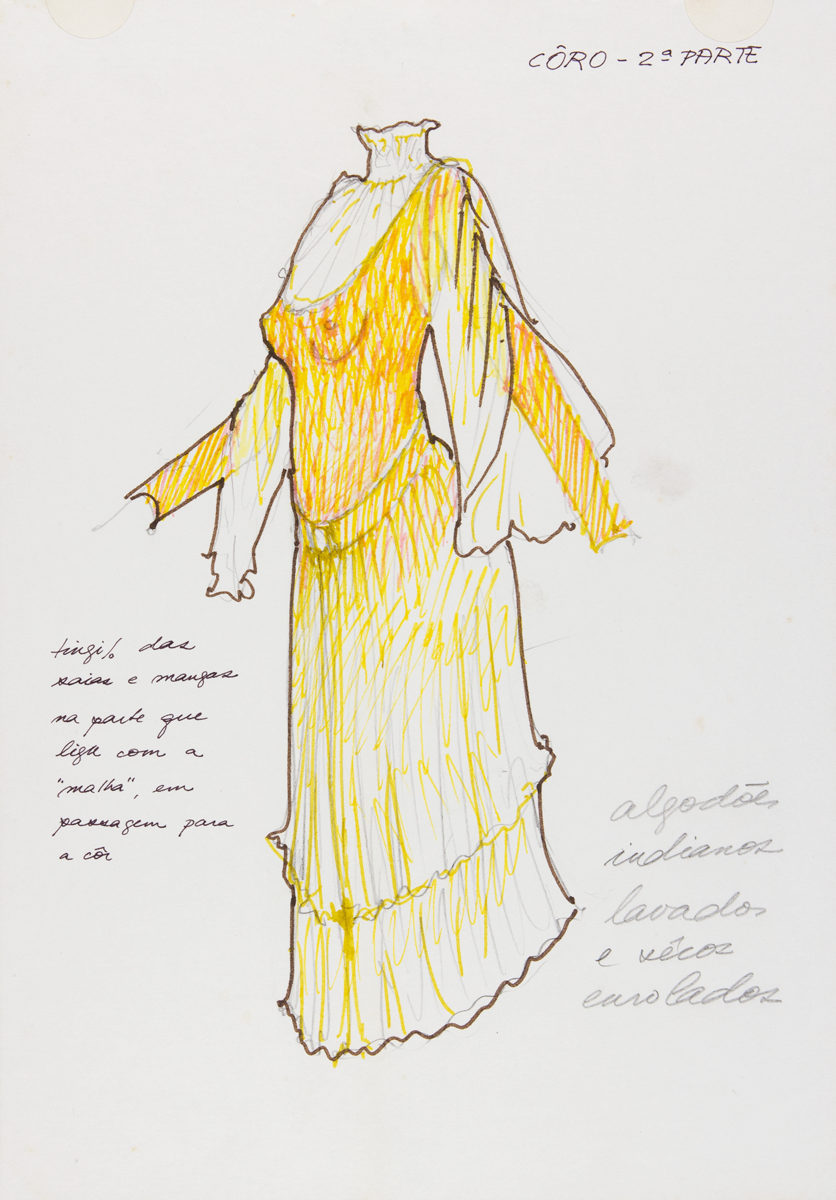 CÔRO - 2ª PARTE
tingi/o das
saias e mangas
na parte que
liga com a
"malha", em
passagem para
a côr
algodões
indianos
lavados
e sêcos
enrolados